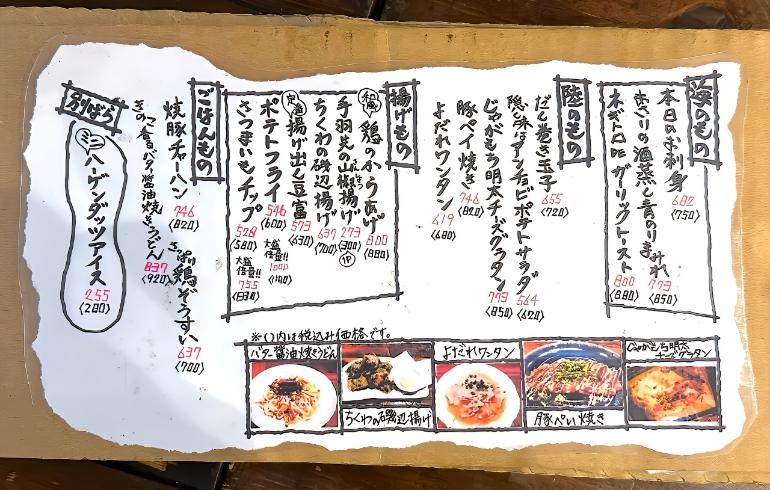 海のもの
本日のお刺身
682
(750)
あさりの酒蒸し青のりまみれ
773
(850)
ネギトロDEガーリックトースト
800
(880)
陸のもの
だし巻き玉子
655
(720)
隠し味はアンチョビポテトサラダ
564
(620)
じゃがもち明太チーズグラタン
773
(850)
豚ペイ焼き
746
(820)
よだれワンタン
619
(680)
揚げもの
和風
鶏のからあげ
800
(880)
手羽先の山椒揚げ
273
(300)
1P
ちくわの磯辺揚げ
637
(700)
定番
揚げ出し豆富
573
(630)
ポテトフライ
546
(600)
大盛倍量!!
1000
(1100)
さつまいもチップ
528
(580)
大盛倍量!!
755
(830)
ごはんもの
焼豚チャーハン
746
(820)
きのこ香るバター醤油焼きうどん
837
(920)
さっぱり鶏ぞうすい
637
(700)
別ばら
ミニ
ハーゲンダッツアイス
255
(280)
※()内は税込み価格です。
バター醤油焼きうどん
ちくわの磯辺揚げ
よだれワンタン
豚ぺい焼き
じゃがもち明太
チーズグラタン